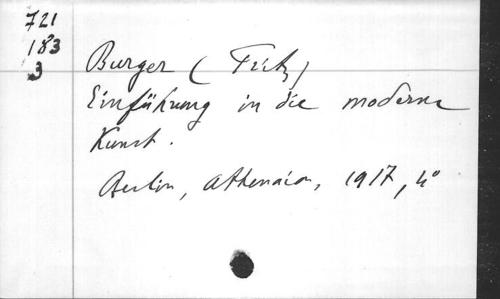 721
183
3
Burger (Fritz)
Einführung in die moderne
Kunst.
Berlin, Athenaion, 1917, 4°